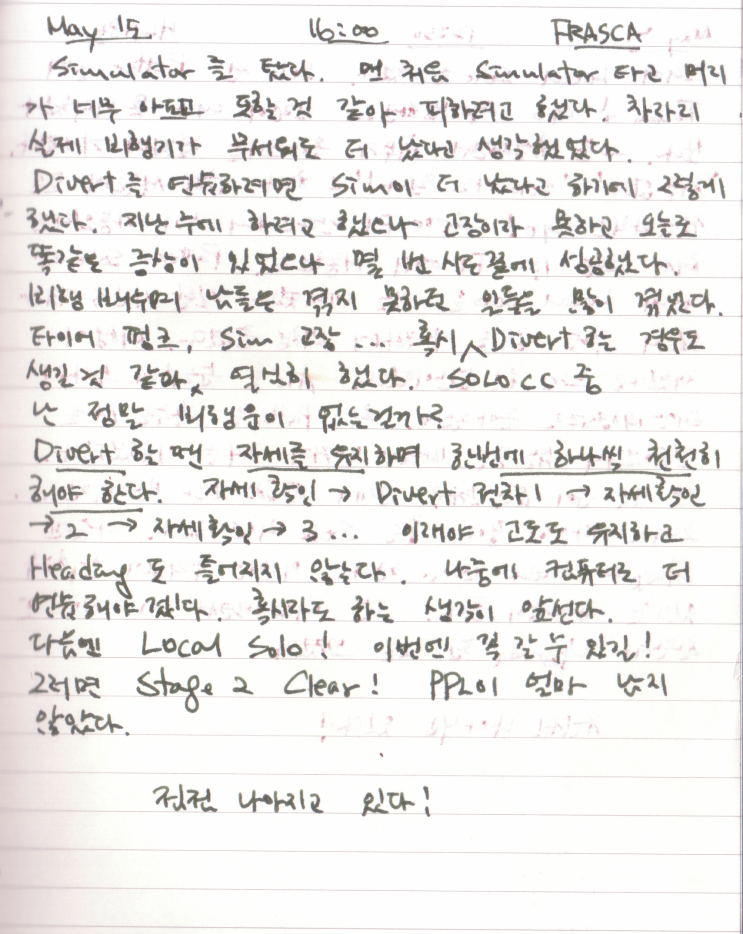 May 15 16:00 FRASCA
Simulator를 탔다. 맨 처음 Simulator 타고 머리
가 너무 아프고 토할 것 같아 피하려고 했다. 차라리
실제 비행기가 무서워도 더 낫다고 생각했었다.
Divert를 연습하려면 Sim이 더 낫다고 하기에 그렇게
했다. 지난 주에 하려고 했으나 고장이라 못하고 오늘도
똑같은 증상이 있었으나 몇 번 시도 끝에 성공했다.
비행 배우며 남들은 겪지 못하던 일들을 많이 겪었다.
타이어 펑크, Sim 고장 ... 혹시 Divert 하는 경우도
생길 것 같아, 열심히 했다. SOLO CC 중
난 정말 비행운이 없는걸까?
Divert 할 땐 자세를 유지하며 한번에 하나씩 천천히
해야 한다. 자세 확인 → Divert 절차 1 → 자세확인
→ 2 → 자세확인 → 3 ... 이래야 고도도 유지하고
Heading도 틀어지지 않는다. 나중에 컴퓨터로 더
연습해야겠다. 혹시라도 하는 생각이 앞선다.
다음엔 Local Solo! 이번엔 꼭 갈 수 있길!
그러면 Stage 2 Clear! PPL이 얼마 남지
않았다.
점점 나아지고 있다!